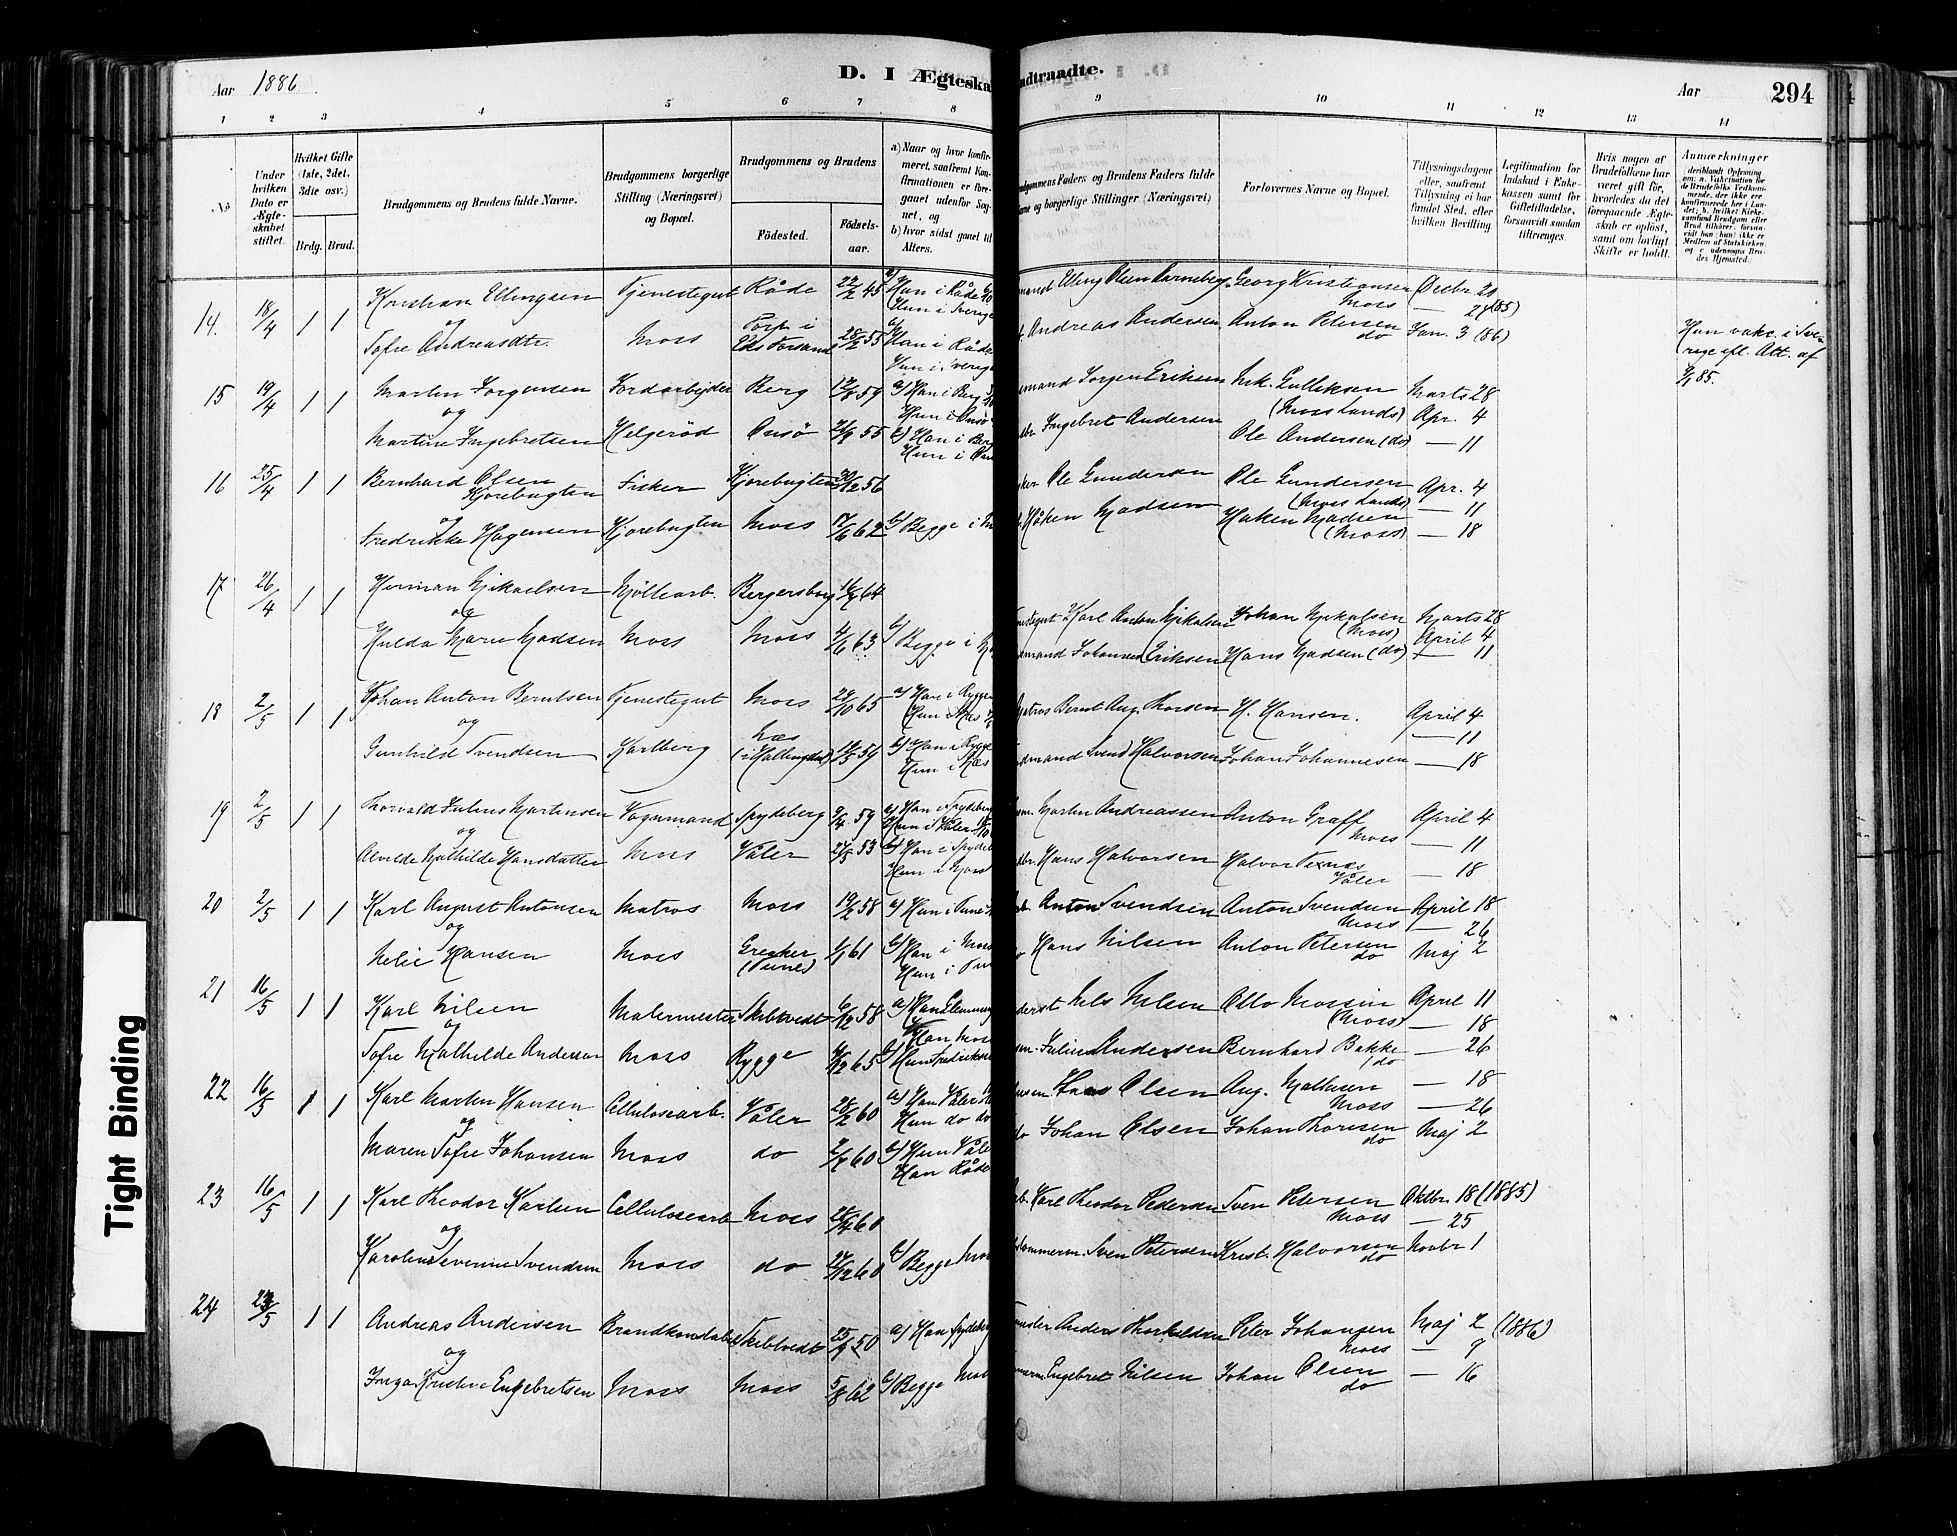 Aar 1886
D. I Ægteska
ndtraadte.
Aar
294
1 2 3 4 5 6 7 8 9 10 11 12 13 14
No
Under hvilken Dato er Ægteskabet stiftet.
Hvilket Gifte (1ste, 2det, 3die osv.)
Brdg. Brud.
Brudgommens og Brudens fulde Navne.
Brudgommens borgerlige Stilling (Næringsvei) og Bopæl.
Brudgommens og Brudens
Fødested.
Fødselsaar.
a) Naar og hvor konfirmeret, saafremt Konfirmationen er foregaaet udenfor Sognet, og
b) hvor sidst gaaet til Alters.
udgommens Faders og Brudens Faders fulde
avne og borgerlige Stillinger (Næringsvei)
Forlovernes Navne og Bopæl.
Tillysningsdagene eller, saafremt Tillysning ei har fundet Sted, efter hvilken Bevilling.
Legitimation for Indskud i Enkekassen samt for Giftetilladelse, forsaavidt saadan tiltrænges.
Hvis nogen af Brudefolkene har været gift før, hvorledes da det foregaaende Ægteskab er opløst, samt om lovligt Skifte er holdt.
Anmærkninger
14. 18/4 1 1 Kristian Ellingsen Tjenestegut Råde 22/2 45 a) Han i Råde Georg Kristiansen Decbr 20
og Hun i Sverige Moss — 27 (85)
Sofie Andreasdtr. Moss 28/2 55 Han i Råde Andreas Andersen Anton Petersen do Jan. 3 (86)
Hun i Sverige
Hun vakc. i Sverige efl. Att. af
15 19/4 1 1 Martin Jorgensen Jordarbejder Berg 59 a) Han i Berg mand Jorgen Eriksen Gulliksen Marts 28
og Hun i Onsø (Moss Lands) Apr. 4
Martine Ingebretsen Helgerød Onsø 55 b) Han i Berg Ingebret Andersen Ole Andersen (do) — 11
Hun i
16 25/4 1 1 Bernhard Olsen Kjorebugten Fisker Kjorebugten 56 Ole Gundersen Ole Gundersen (Moss Lands) Apr. 4
og — 11
Fredrikke Hagensen Kjorebugten Moss 17/6 62 b) Begge i Håken Madsen Haken Madsen (Moss) — 18
17 26/4 1 1 Herman Mikaelsen Møllearb. Bergersborg 64 Karl Anton Mikalsen Johan Mikalsen (Moss) Marts 28
og April 4
Hulda Marie Madsen Moss Moss 4/6 63 b) Begge i mand Johannes Eriksen Hans Madsen (do) — 11
18 2/5 1 1 Johan Anton Berntsen Tjenestegut Moss 65 a) Han i Rygge Matros Bernt Aug. Thorsen H. Hansen. April 4
og Hun i Næs — 11
Gunhild Svendsen Karlberg Næs (i Hallingdal) 59 b) Han i Rygge mand Svend Halvorsen Johan Johannesen — 18
Hun i Næs
19 2/5 1 1 Thorvald Julius Martensen Vognmand Spydeberg 9/4 59 a) Han i Spydeberg Martin Andreassen Anton Graff Moss April 4
og Hun i Våler — 11
Alvilde Mathilde Hansdatter Moss Våler 53 b) Han i Spydeb Hans Halvorsen Halvor Texnes Våler — 18
Hun i Moss
20 2/5 1 1 Karl August Antonsen Matros Moss 19/2 58 a) Hun i Tune Anton Svendsen Anton Svendsen Moss April 18
og — 26
Helie Hansen Moss Greaker (Tune) 1/1 61 b) Han i Moss Hans Nilsen Anton Petersen do Maj 2
Hun i Tun
21 16/5 1 1 Karl Nilsen Malermester Skibtvedt 6/12 58 a) Han Glemming Nils Nilsen Otto Mossin (Moss) April 11
og — 18
Sofie Mathilde Andersen Moss Rygge 65 Julius Andersen Bernhard Bakke do — 26
22 16/5 1 1 Karl Martin Hansen Cellulosearb. Våler 28/2 60 a) Han Våler Hans Olsen Aug. Mathisen Moss — 18
og Hun do do — 26
Maren Sofie Johansen Moss do 60 b) Hun Våler Johan Olsen Johan Thoresen do Maj 2
Han Råde
23 16/5 1 1 Karl Theodor Karlsen Cellulosearb Moss 60 Karl Theodor Pedersen Sven Petersen Moss Oktbr. 18 (1885)
og — 25
Karoline Severine Svendsen Moss do 27/12 60 b) Begge Moss Tømmerm. Sven Petersen Krist. Halvorsen do Novbr 1
24 23/5 1 1 Andreas Andersen Brandkonstabel Skibtvedt 25/9 50 a) Han Spydeberg Anders Thorkildsen Peter Johansen Moss Maj 2 (1886)
og — 9
Inga Kristine Engebretsen Moss Moss 5/8 62 b) Begge Mos Engebret Nilsen Johan Olsen do — 16
Tight Binding